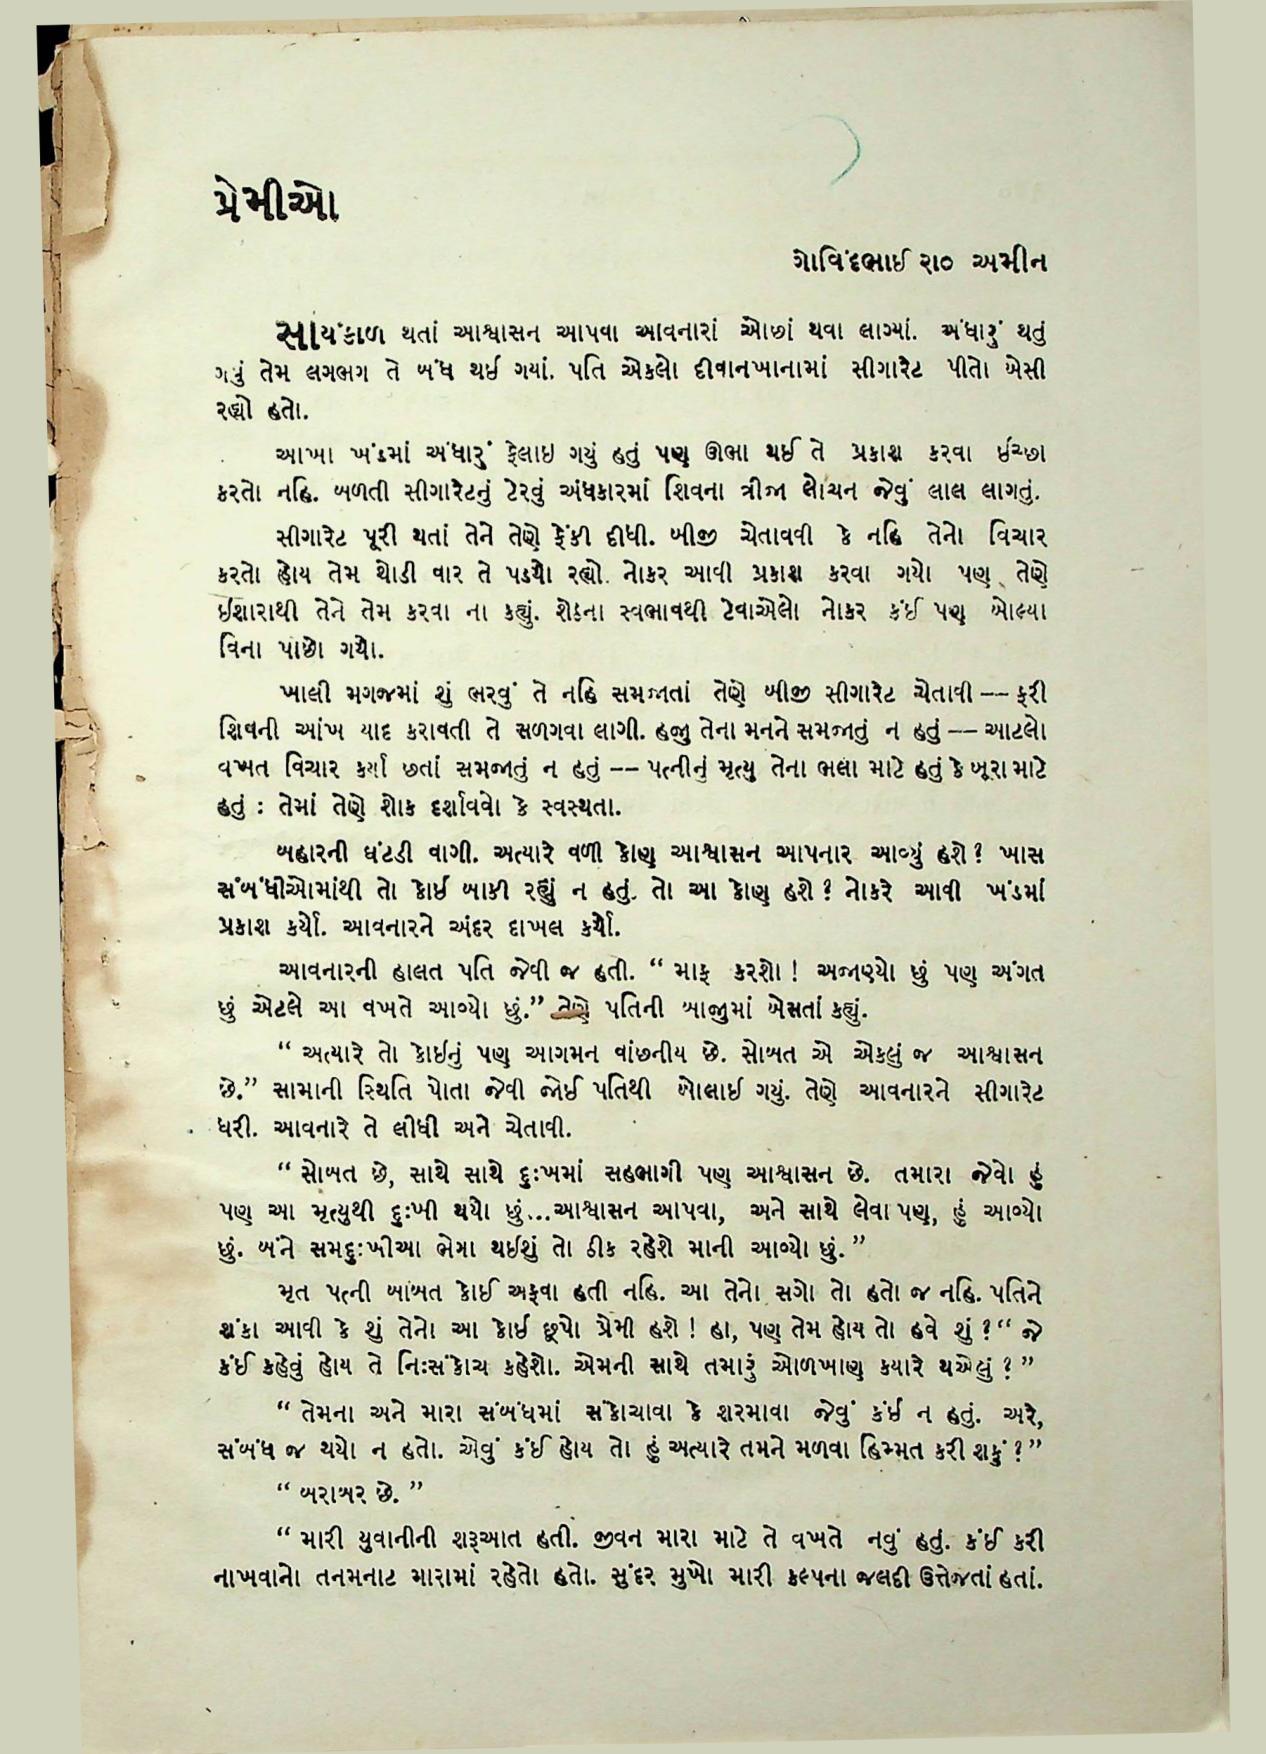 પ્રેમીઓ
ગોવિંદભાઈ રા૦ અમીન
સાયંકાળ થતાં આશ્વાસન આપવા આવનારાં ઓછાં થવા લાગ્યાં. અંધારું થતું
ગયું તેમ લગભગ તે બંધ થઈ ગયાં. પતિ એકલો દીવાનખાનામાં સીગારેટ પીતો બેસી
રહ્યો હતો.
આખા ખંડમાં અંધારું ફેલાઇ ગયું હતું પણ ઊભા થઈ તે પ્રકાશ કરવા ઈચ્છા
કરતો નહિ. બળતી સીગારેટનું ટેરવું અંધકારમાં શિવના ત્રીજા લોચન જેવું લાલ લાગતું.
સીગારેટ પૂરી થતાં તેને તેણે ફેંકી દીધી. બીજી ચેતાવવી કે નહિ તેનો વિચાર
કરતો હોય તેમ થોડી વાર તે પડ્યો રહ્યો. નોકર આવી પ્રકાશ કરવા ગયો પણ તેણે
ઈશારાથી તેને તેમ કરવા ના કહ્યું. શેઠના સ્વભાવથી ટેવાએલો નોકર કંઈ પણ બોલ્યા
વિના પાછો ગયો.
ખાલી મગજમાં શું ભરવું તે નહિ સમજાતાં તેણે બીજી સીગારેટ ચેતાવી -- ફરી
શિવની આંખ યાદ કરાવતી તે સળગવા લાગી. હજુ તેના મનને સમજાતું ન હતું -- આટલો
વખત વિચાર કર્યા છતાં સમજાતું ન હતું -- પત્નીનું મૃત્યુ તેના ભલા માટે હતું કે બૂરા માટે
હતું : તેમાં તેણે શોક દર્શાવવો કે સ્વસ્થતા.
બહારની ઘંટડી વાગી. અત્યારે વળી કોણ આશ્વાસન આપનાર આવ્યું હશે? ખાસ
સંબંધીઓમાંથી તો કોઈ બાકી રહ્યું ન હતું. તો આ કોણ હશે? નોકરે આવી ખંડમાં
પ્રકાશ કર્યો. આવનારને અંદર દાખલ કર્યો.
આવનારની હાલત પતિ જેવી જ હતી. “ માફ કરશો ! અજાણ્યો છું પણ અંગત
છું એટલે આ વખતે આવ્યો છું.” તેણે પતિની બાજુમાં બેસતાં કહ્યું.
“ અત્યારે તો કોઈનું પણ આગમન વાંછનીય છે. સોબત એ એકલું જ આશ્વાસન
છે.” સામાની સ્થિતિ પોતા જેવી જોઈ પતિથી બોલાઈ ગયું. તેણે આવનારને સીગારેટ
ધરી. આવનારે તે લીધી અને ચેતાવી.
“ સોબત છે, સાથે સાથે દુઃખમાં સહભાગી પણ આશ્વાસન છે. તમારા જેવો હું
પણ આ મૃત્યુથી દુઃખી થયો છું...આશ્વાસન આપવા, અને સાથે લેવા પણ, હું આવ્યો
છું. બંને સમદુઃખીઆ ભેગા થઈશું તો ઠીક રહેશે માની આવ્યો છું.”
મૃત પત્ની બાબત કોઈ અફવા હતી નહિ. આ તેનો સગો તો હતો જ નહિ. પતિને
શંકા આવી કે શું તેનો આ કોઈ છૂપો પ્રેમી હશે ! હા, પણ તેમ હોય તો હવે શું ? “ જે
કંઈ કહેવું હોય તે નિઃસંકોચ કહેશો. એમની સાથે તમારું ઓળખાણ ક્યારે થએલું ?”
“ તેમના અને મારા સંબંધમાં સંકોચાવા કે શરમાવા જેવું કંઈ ન હતું. અરે,
સંબંધ જ થયો ન હતો. એવું કંઈ હોય તો હું અત્યારે તમને મળવા હિમ્મત કરી શકું ?”
“ બરાબર છે. ”
“ મારી યુવાનીની શરૂઆત હતી. જીવન મારા માટે તે વખતે નવું હતું. કંઈ કરી
નાખવાનો તનમનાટ મારામાં રહેતો હતો. સુંદર મુખો મારી કલ્પના જલદી ઉત્તેજતાં હતાં.